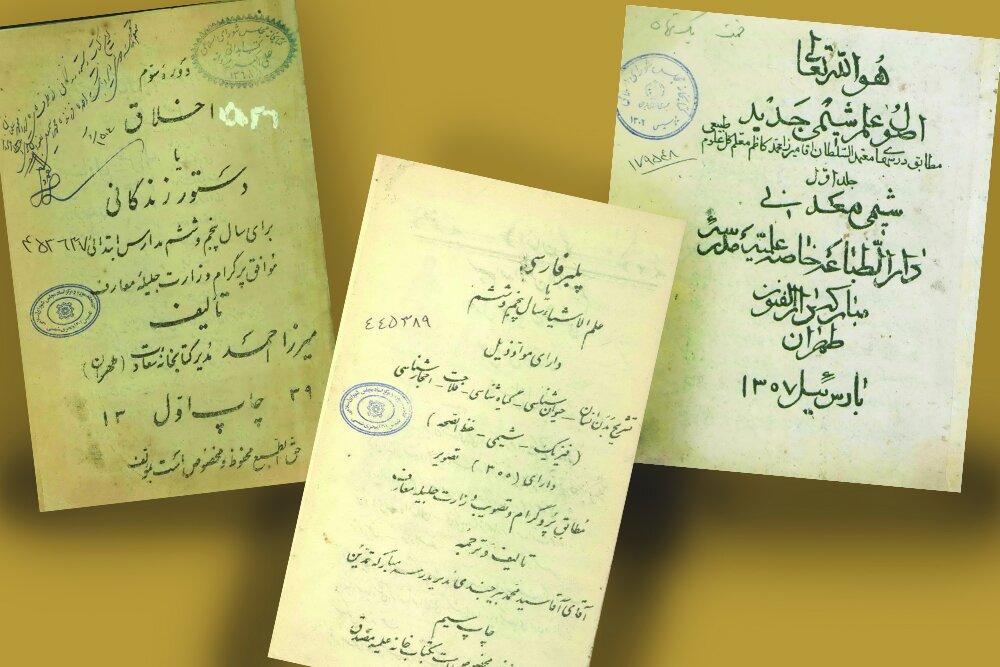 دورهٔ سوم
اخلاق
یا
دستور زندگانی
برای سال پنجم و ششم مدارس ابتدائی
موافق پرگرام وزارت جلیله معارف
تألیف
میرزا احمد مدیر کتابخانه سعادت (طهران)
۳۹ چاپ اول ۱۳
حق الطبع محفوظ و مخصوص است بمؤلف
پلبر فارسی
یا
علم الاشیاء سال پنجم و ششم
۴۴۵۳۸۹
دارای مواد ذیل
تشریح بدن انسان - حیوان شناسی - گیاه شناسی - فلاحت - احجار شناسی
(فیزیک - شیمی - حفظ الصحه)
دارای (۳۰۰) تصویر
مطابق پروگرام و تصویب وزارت جلیله معارف
تألیف و ترجمه
آقای آقا سید محمد بیرجندی مدیر مدرسه مبارکه تمدن
چاپ سیم
قیمت یکتومان
هو الله تعالی
اصول علم شیمی جدید
مطابق درسهای معتمد السلطان آقا میرزا محمد کاظم معلم کل علوم طبیعی
۱۷۹۵۴۸
جلد اول
شیمی معدنی
دار الطباعه خاصه علمیه مدرسه
مبارکه دار الفنون
طهران
بارس ئیل ۱۳۰۷